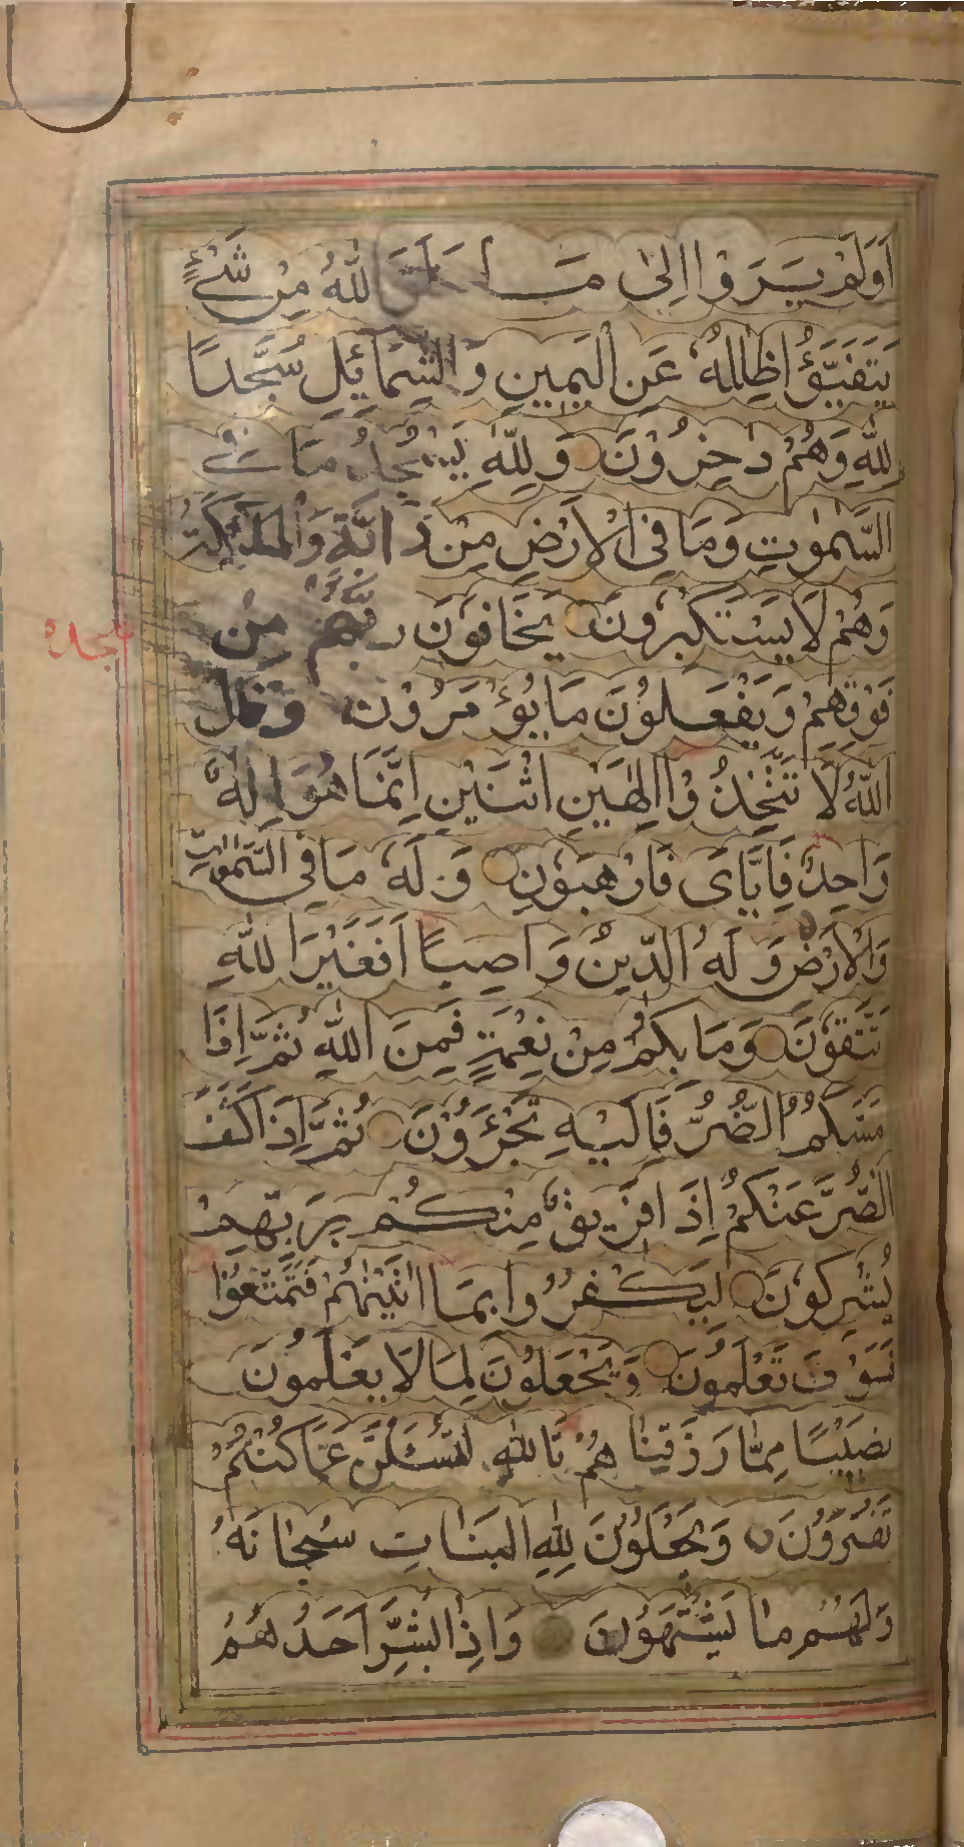 اَوَلَمْ يَرَوْا اِلىٰ مَا خَلَقَ اللّٰهُ مِنْ شَيْءٍ
يَتَفَيَّؤُا ظِلٰلُهُ عَنِ الْيَمِينِ وَالشَّمَائِلِ سُجَّدًا
لِلّٰهِ وَهُمْ دٰخِرُوْنَ وَلِلّٰهِ يَسْجُدُ مَا فِي
السَّمٰوٰتِ وَمَا فِي الْاَرْضِ مِنْ دَابَّةٍ وَالْمَلٰئِكَةُ
وَهُمْ لَا يَسْتَكْبِرُونَ يَخَافُونَ رَبَّهُمْ مِنْ
فَوْقِهِمْ وَيَفْعَلُوْنَ مَا يُؤْمَرُوْنَ وَقَالَ
اللّٰهُ لَا تَتَّخِذُوْا اِلٰهَيْنِ اثْنَيْنِ اِنَّمَا هُوَ اِلٰهٌ
وَاحِدٌ فَاِيَّايَ فَارْهَبُوْنِ وَلَهُ مَا فِي السَّمٰوٰتِ
وَالْاَرْضِ وَلَهُ الدِّيْنُ وَاصِبًا اَفَغَيْرَ اللّٰهِ
تَتَّقُوْنَ وَمَا بِكُمْ مِنْ نِعْمَةٍ فَمِنَ اللّٰهِ ثُمَّ اِذَا
مَسَّكُمُ الضُّرُّ فَاِلَيْهِ تَجْئَرُوْنَ ثُمَّ اِذَا كَشَفَ
الضُّرَّ عَنْكُمْ اِذَا فَرِيقٌ مِنْكُمْ بِرَبِّهِمْ
يُشْرِكُوْنَ لِيَكْفُرُوا بِمَا اٰتَيْنٰهُمْ فَتَمَتَّعُوْا
فَسَوْفَ تَعْلَمُوْنَ وَيَجْعَلُوْنَ لِمَا لَا يَعْلَمُوْنَ
نَصِيْبًا مِمَّا رَزَقْنَاهُمْ تَاللّٰهِ لَتُسْئَلُنَّ عَمَّا كُنْتُمْ
تَفْتَرُوْنَ وَيَجْعَلُوْنَ لِلّٰهِ الْبَنَاتِ سُبْحَانَهُ
وَلَهُمْ مَا يَشْتَهُوْنَ وَاِذَا بُشِّرَ اَحَدُهُمْ
سجده